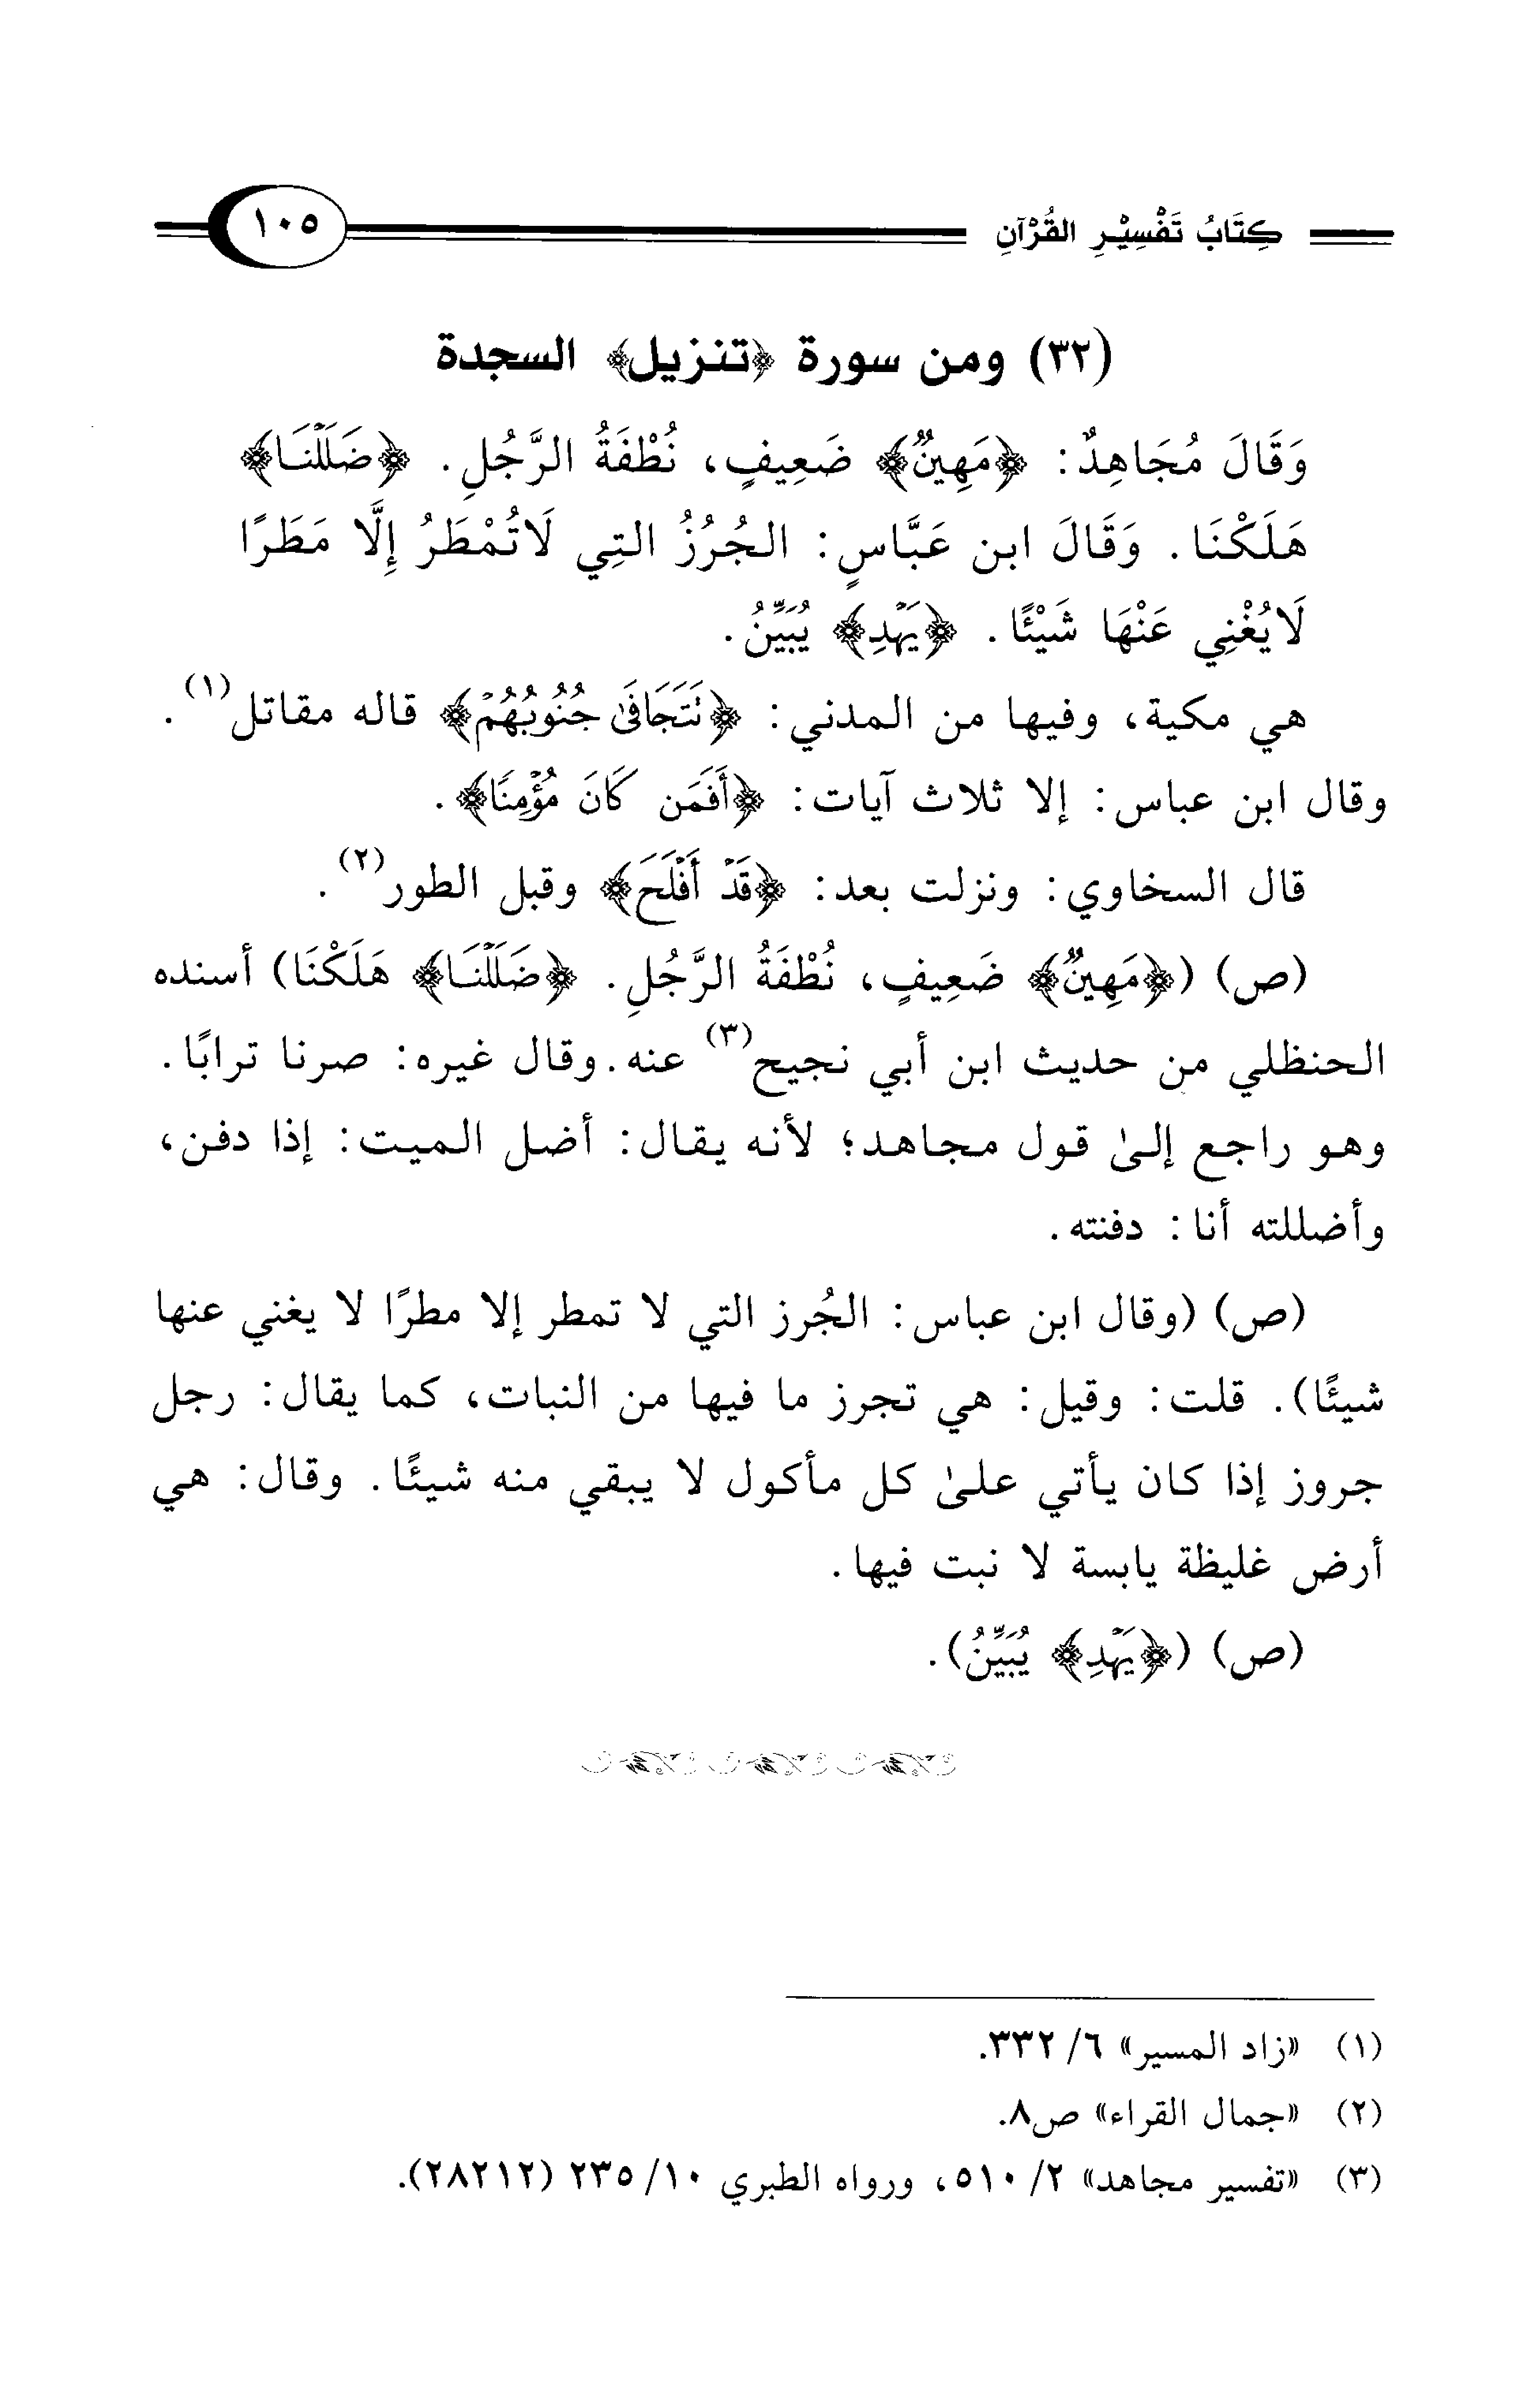 كِتَابُ تَفْسِيْرِ القُرْآنِ
١٠٥
(٣٢) ومن سورة ﴿تنزيل﴾ السجدة
وَقَالَ مُجَاهِدٌ: ﴿مَهِينٌ﴾ ضَعِيفٍ، نُطْفَةُ الرَّجُلِ. ﴿ضَلَلْنَا﴾
هَلَكْنَا. وَقَالَ ابن عَبَّاسٍ: الجُرُزُ التِي لَاتُمْطَرُ إِلَّا مَطَرًا
لَايُغْنِي عَنْهَا شَيْئًا. ﴿يَهْدِ﴾ يُبَيِّنُ.
هي مكية، وفيها من المدني: ﴿نَتَجَافَىٰ جُنُوبُهُمْ﴾ قاله مقاتل(١).
وقال ابن عباس: إلا ثلاث آيات: ﴿أَفَمَن كَانَ مُؤْمِنًا﴾.
قال السخاوي: ونزلت بعد: ﴿قَدْ أَفْلَحَ﴾ وقبل الطور(٢).
(ص) (﴿مَهِينٌ﴾ ضَعِيفٍ، نُطْفَةُ الرَّجُلِ. ﴿ضَلَلْنَا﴾ هَلَكْنَا) أسنده
الحنظلي من حديث ابن أبي نجيح(٣) عنه. وقال غيره: صرنا ترابًا.
وهو راجع إلىٰ قول مجاهد؛ لأنه يقال: أضل الميت: إذا دفن،
وأضللته أنا: دفنته.
(ص) (وقال ابن عباس: الجُرز التي لا تمطر إلا مطرًا لا يغني عنها
شيئًا). قلت: وقيل: هي تجرز ما فيها من النبات، كما يقال: رجل
جروز إذا كان يأتي علىٰ كل مأكول لا يبقي منه شيئًا. وقال: هي
أرض غليظة يابسة لا نبت فيها.
(ص) (﴿يَهْدِ﴾ يُبَيِّنُ).
(١) «زاد المسير» ٦/ ٣٣٢.
(٢) «جمال القراء» ص٨.
(٣) «تفسير مجاهد» ٢/ ٥١٠، ورواه الطبري ١٠/ ٢٣٥ (٢٨٢١٢).